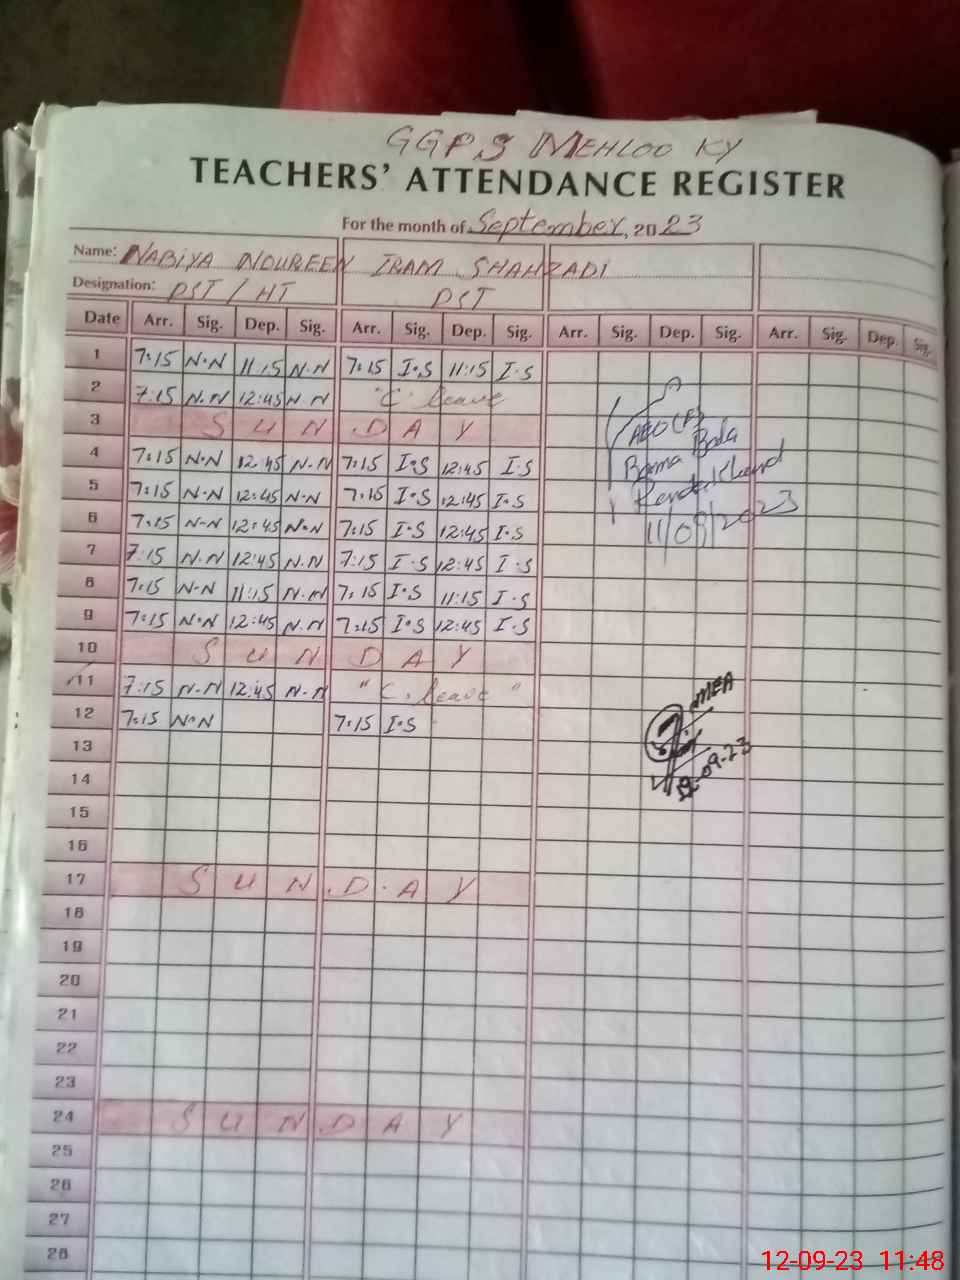 GGPS MEHLOO KY
TEACHERS' ATTENDANCE REGISTER
For the month of September, 2023
Name: NABIYA NOUREEN IRAM SHAHZADI
Designation: PST / HT PST
Date Arr. Sig. Dep. Sig. Arr. Sig. Dep. Sig. Arr. Sig. Dep. Sig. Arr. Sig. Dep. Sig.
1 7:15 N.N 11:15 N.N 7:15 I.S 11:15 I.S
2 7:15 N.N 12:45 N.N "C" leave
3 SUNDAY
4 7:15 N.N 12:45 N.N 7:15 I.S 12:45 I.S
5 7:15 N.N 12:45 N.N 7:15 I.S 12:45 I.S
6 7:15 N.N 12:45 N.N 7:15 I.S 12:45 I.S
7 7:15 N.N 12:45 N.N 7:15 I.S 12:45 I.S
8 7:15 N.N 11:15 N.N 7:15 I.S 11:15 I.S
9 7:15 N.N 12:45 N.N 7:15 I.S 12:45 I.S
10 SUNDAY
11 7:15 N.N 12:45 N.N "C. leave"
12 7:15 N.N 7:15 I.S
13
14
15
16
17 SUNDAY
18
19
20
21
22
23
24 SUNDAY
25
26
27
28
AEO (F)
Bama Bala
11/09/2023
MEA
12-09-23
12-09-23 11:48